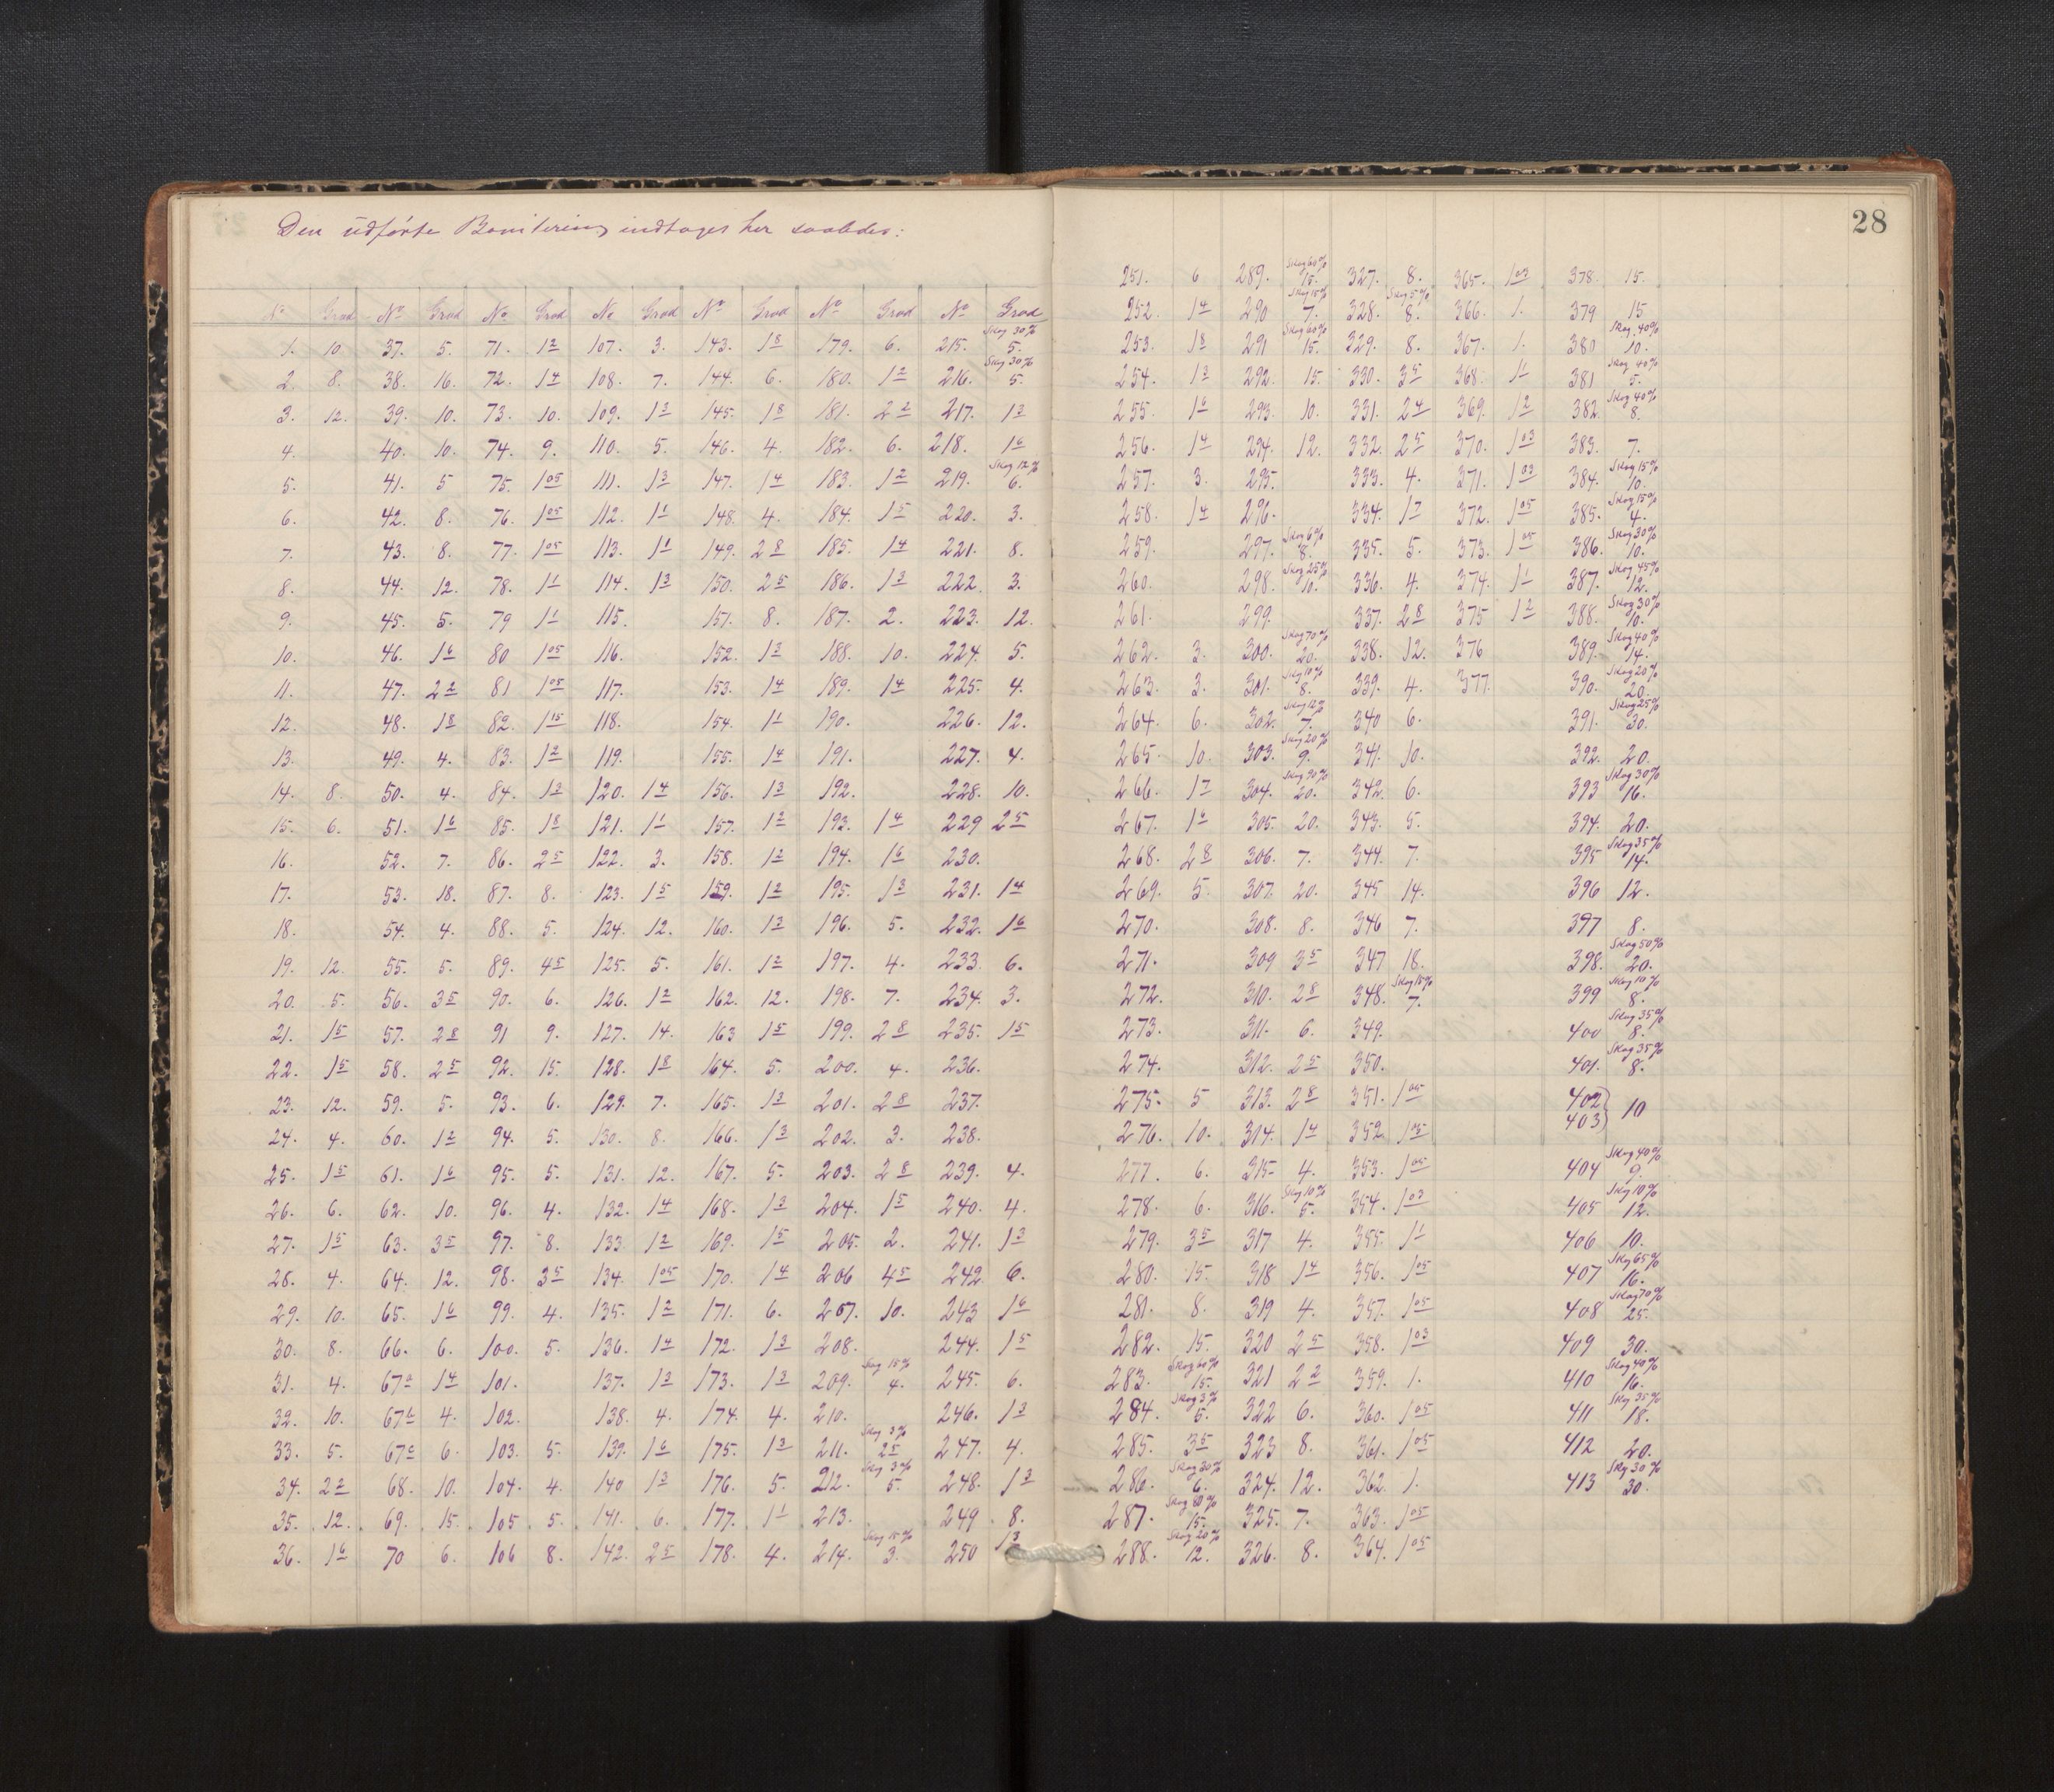 Den udførte Bonitering indtages her saaledes:
No Grad No Grad No Grad No Grad No Grad No Grad No Grad
1. 10. 37. 5. 71. 1<u>2</u> 107. 3. 143. 1<u>8</u> 179. 6. 215. Skog 30% 5.
2. 8. 38. 16. 72. 1<u>4</u> 108. 7. 144. 6. 180. 1<u>2</u> 216. Skog 30% 5.
3. 12. 39. 10. 73. 10. 109. 1<u>3</u> 145. 1<u>8</u> 181. 2<u>2</u> 217. 1<u>3</u>
4. 40. 10. 74. 9. 110. 5. 146. 4. 182. 6. 218. 1<u>6</u>
5. 41. 5 75. 1<u>05</u> 111. 1<u>3</u> 147. 1<u>4</u> 183. 1<u>2</u> 219. Skog 12% 6.
6. 42. 8. 76. 1<u>05</u> 112. 1<u>1</u> 148. 4. 184. 1<u>5</u> 220. 3.
7. 43. 8. 77. 1<u>05</u> 113. 1<u>1</u> 149. 2<u>8</u> 185. 1<u>4</u> 221. 8.
8. 44. 12. 78. 1<u>1</u> 114. 1<u>3</u> 150. 2<u>5</u> 186. 1<u>3</u> 222. 3.
9. 45. 5. 79 1<u>1</u> 115. 151. 8. 187. 2. 223. 12.
10. 46. 1<u>6</u> 80 1<u>05</u> 116. 152. 1<u>3</u> 188. 10. 224. 5.
11. 47. 2<u>2</u> 81 1<u>05</u> 117. 153. 1<u>4</u> 189. 1<u>4</u> 225. 4.
12. 48. 1<u>8</u> 82. 1<u>15</u> 118. 154. 1<u>1</u> 190. 226. 12.
13. 49. 4. 83. 1<u>2</u> 119. 155. 1<u>4</u> 191. 227. 4.
14. 8. 50. 4. 84. 1<u>3</u> 120. 1<u>4</u> 156. 1<u>3</u> 192. 228. 10.
15. 6. 51. 1<u>6</u> 85. 1<u>8</u> 121. 1<u>1</u> 157. 1<u>2</u> 193. 1<u>4</u> 229 2<u>5</u>
16. 52. 7. 86. 2<u>5</u> 122. 3. 158. 1<u>2</u> 194. 1<u>6</u> 230.
17. 53. 18. 87. 8. 123. 1<u>5</u> 159. 1<u>2</u> 195. 1<u>3</u> 231. 1<u>4</u>
18. 54. 4. 88. 5. 124. 12. 160. 1<u>3</u> 196. 5. 232. 1<u>6</u>
19. 12. 55. 5. 89. 4<u>5</u> 125. 5. 161. 1<u>2</u> 197. 4. 233. 6.
20. 5. 56. 3<u>5</u> 90. 6. 126. 1<u>2</u> 162. 12. 198. 7. 234. 3.
21. 1<u>5</u> 57. 2<u>8</u> 91 9. 127. 14. 163 1<u>5</u> 199. 2<u>8</u> 235. 1<u>5</u>
22. 1<u>5</u> 58. 2<u>5</u> 92. 15. 128. 1<u>8</u> 164. 5. 200. 4. 236.
23. 12. 59. 5. 93. 6. 129. 7. 165. 1<u>3</u> 201. 2<u>8</u> 237.
24. 4. 60. 1<u>2</u> 94. 5. 130. 8. 166. 1<u>3</u> 202. 3. 238.
25. 1<u>5</u> 61. 1<u>6</u> 95. 5. 131. 12. 167. 5. 203. 2<u>8</u> 239. 4.
26. 6. 62. 10. 96. 4. 132. 1<u>4</u> 168. 1<u>3</u> 204. 1<u>5</u> 240. 4.
27. 1<u>5</u> 63. 3<u>5</u> 97. 8. 133 1<u>2</u> 169. 1<u>5</u> 205. 2. 241. 1<u>3</u>
28. 4. 64. 12. 98. 3<u>5</u> 134. 1<u>05</u> 170. 1<u>4</u> 206 4<u>5</u> 242 6.
29. 10. 65. 1<u>6</u> 99. 4. 135. 1<u>2</u> 171. 6. 207. 10. 243 1<u>6</u>
30. 8. 66. 6. 100. 5. 136. 1<u>4</u> 172. 1<u>3</u> 208. 244. 1<u>5</u>
31. 4. 67a 1<u>4</u> 101. 137. 1<u>3</u> 173. 1<u>3</u> 209. Skog 15% 4. 245. 6.
32. 10. 67b 4. 102. 138. 4. 174. 4. 210. 246. 1<u>3</u>
33. 5. 67c 6. 103. 5. 139. 1<u>6</u> 175. 1<u>3</u> 211. Skog 3% 2<u>5</u> 247. 4.
34. 2<u>2</u> 68. 10. 104. 4. 140 1<u>3</u> 176. 5. 212. Skog 3% 5. 248. 1<u>3</u>
35. 12. 69. 15. 105 5. 141. 6. 177. 1<u>1</u> 213. 249 8.
36. 1<u>6</u> 70 6. 106 8. 142. 2<u>5</u> 178. 4. 214. Skog 15% 3. 250 1<u>3</u>
28
251. 6 289. Skog 60% 15. 327. 8. 365. 1<u>03</u> 378. 15.
252. 1<u>4</u> 290 Skog 15% 7. 328. Skog 5% 8. 366. 1. 379 15.
253. 1<u>8</u> 291 Skog 60% 15. 329. 8. 367. 1. 380 Skog 40% 10.
254. 1<u>3</u> 292. 15. 330. 3<u>5</u> 368. 1<u>1</u> 381 Skog 40% 5.
255. 1<u>6</u> 293. 10. 331. 2<u>4</u> 369. 1<u>2</u> 382. Skog 40% 8.
256. 1<u>4</u> 294. 12. 332. 2<u>5</u> 370. 1<u>03</u> 383. 7.
257. 3. 295. 333. 4. 371. 1<u>03</u> 384. Skog 15% 10.
258. 1<u>4</u> 296. 334. 1<u>7</u> 372. 1<u>05</u> 385. Skog 15% 4.
259. 297. Skog 6% 8. 335. 5. 373. 1<u>05</u> 386. Skog 30% 10.
260. 298. Skog 25% 10. 336. 4. 374. 1<u>1</u> 387. Skog 45% 12.
261. 299. 337. 2<u>8</u> 375 1<u>2</u> 388. Skog 30% 10.
262. 3. 300. Skog 70% 20. 338. 12. 376 389. Skog 40% 14.
263. 3. 301. Skog 10% 8. 339. 4. 377. 390. Skog 20% 20.
264. 6. 302. Skog 12% 7. 340 6. 391. Skog 25% 30.
265. 10. 303. Skog 20% 9. 341. 10. 392. 20.
266. 1<u>7</u> 304. Skog 90% 20. 342. 6. 393 Skog 30% 16.
267. 1<u>6</u> 305. 20. 343. 5. 394. 20.
268. 2<u>8</u> 306. 7. 344. 7. 395 Skog 35% 14.
269. 5. 307. 20. 345 14. 396 12.
270. 308. 8. 346 7. 397 8.
271. 309 3<u>5</u> 347 18. 398. Skog 50% 20.
272. 310. 2<u>8</u> 348. Skog 15% 7. 399 Skog 10% 8.
273. 311. 6. 349. 400 Skog 35% 8.
274. 312. 2<u>5</u> 350. 401. Skog 35% 8.
275. 5 313. 2<u>8</u> 351. 1<u>05</u> 402 } 10
276. 10. 314. 1<u>4</u> 352. 1<u>05</u> 403
277. 6. 315 4. 353. 1<u>05</u> 404 Skog 40% 9.
278. 6. 316. Skog 10% 5. 354. 1<u>03</u> 405 Skog 10% 12.
279. 3<u>5</u> 317 4. 355. 1<u>1</u> 406 10.
280. 15. 318 1<u>4</u> 356. 1<u>05</u> 407 Skog 65% 16.
281. 8. 319 4. 357. 1<u>05</u> 408 Skog 70% 25.
282. 15. 320 2<u>5</u> 358. 1<u>03</u> 409 30.
283. Skog 60% 15. 321 2<u>2</u> 359. 1. 410 Skog 40% 16.
284. Skog 3% 5. 322 6. 360. 1<u>05</u> 411 Skog 35% 18.
285. 3<u>5</u> 323 8. 361. 1<u>05</u> 412 20.
286. Skog 30% 6. 324. 12. 362. 1. 413 Skog 30% 30.
287. Skog 80% 15. 325. 7. 363. 1<u>05</u>
288. Skog 20% 12. 326. 8. 364. 1<u>05</u>